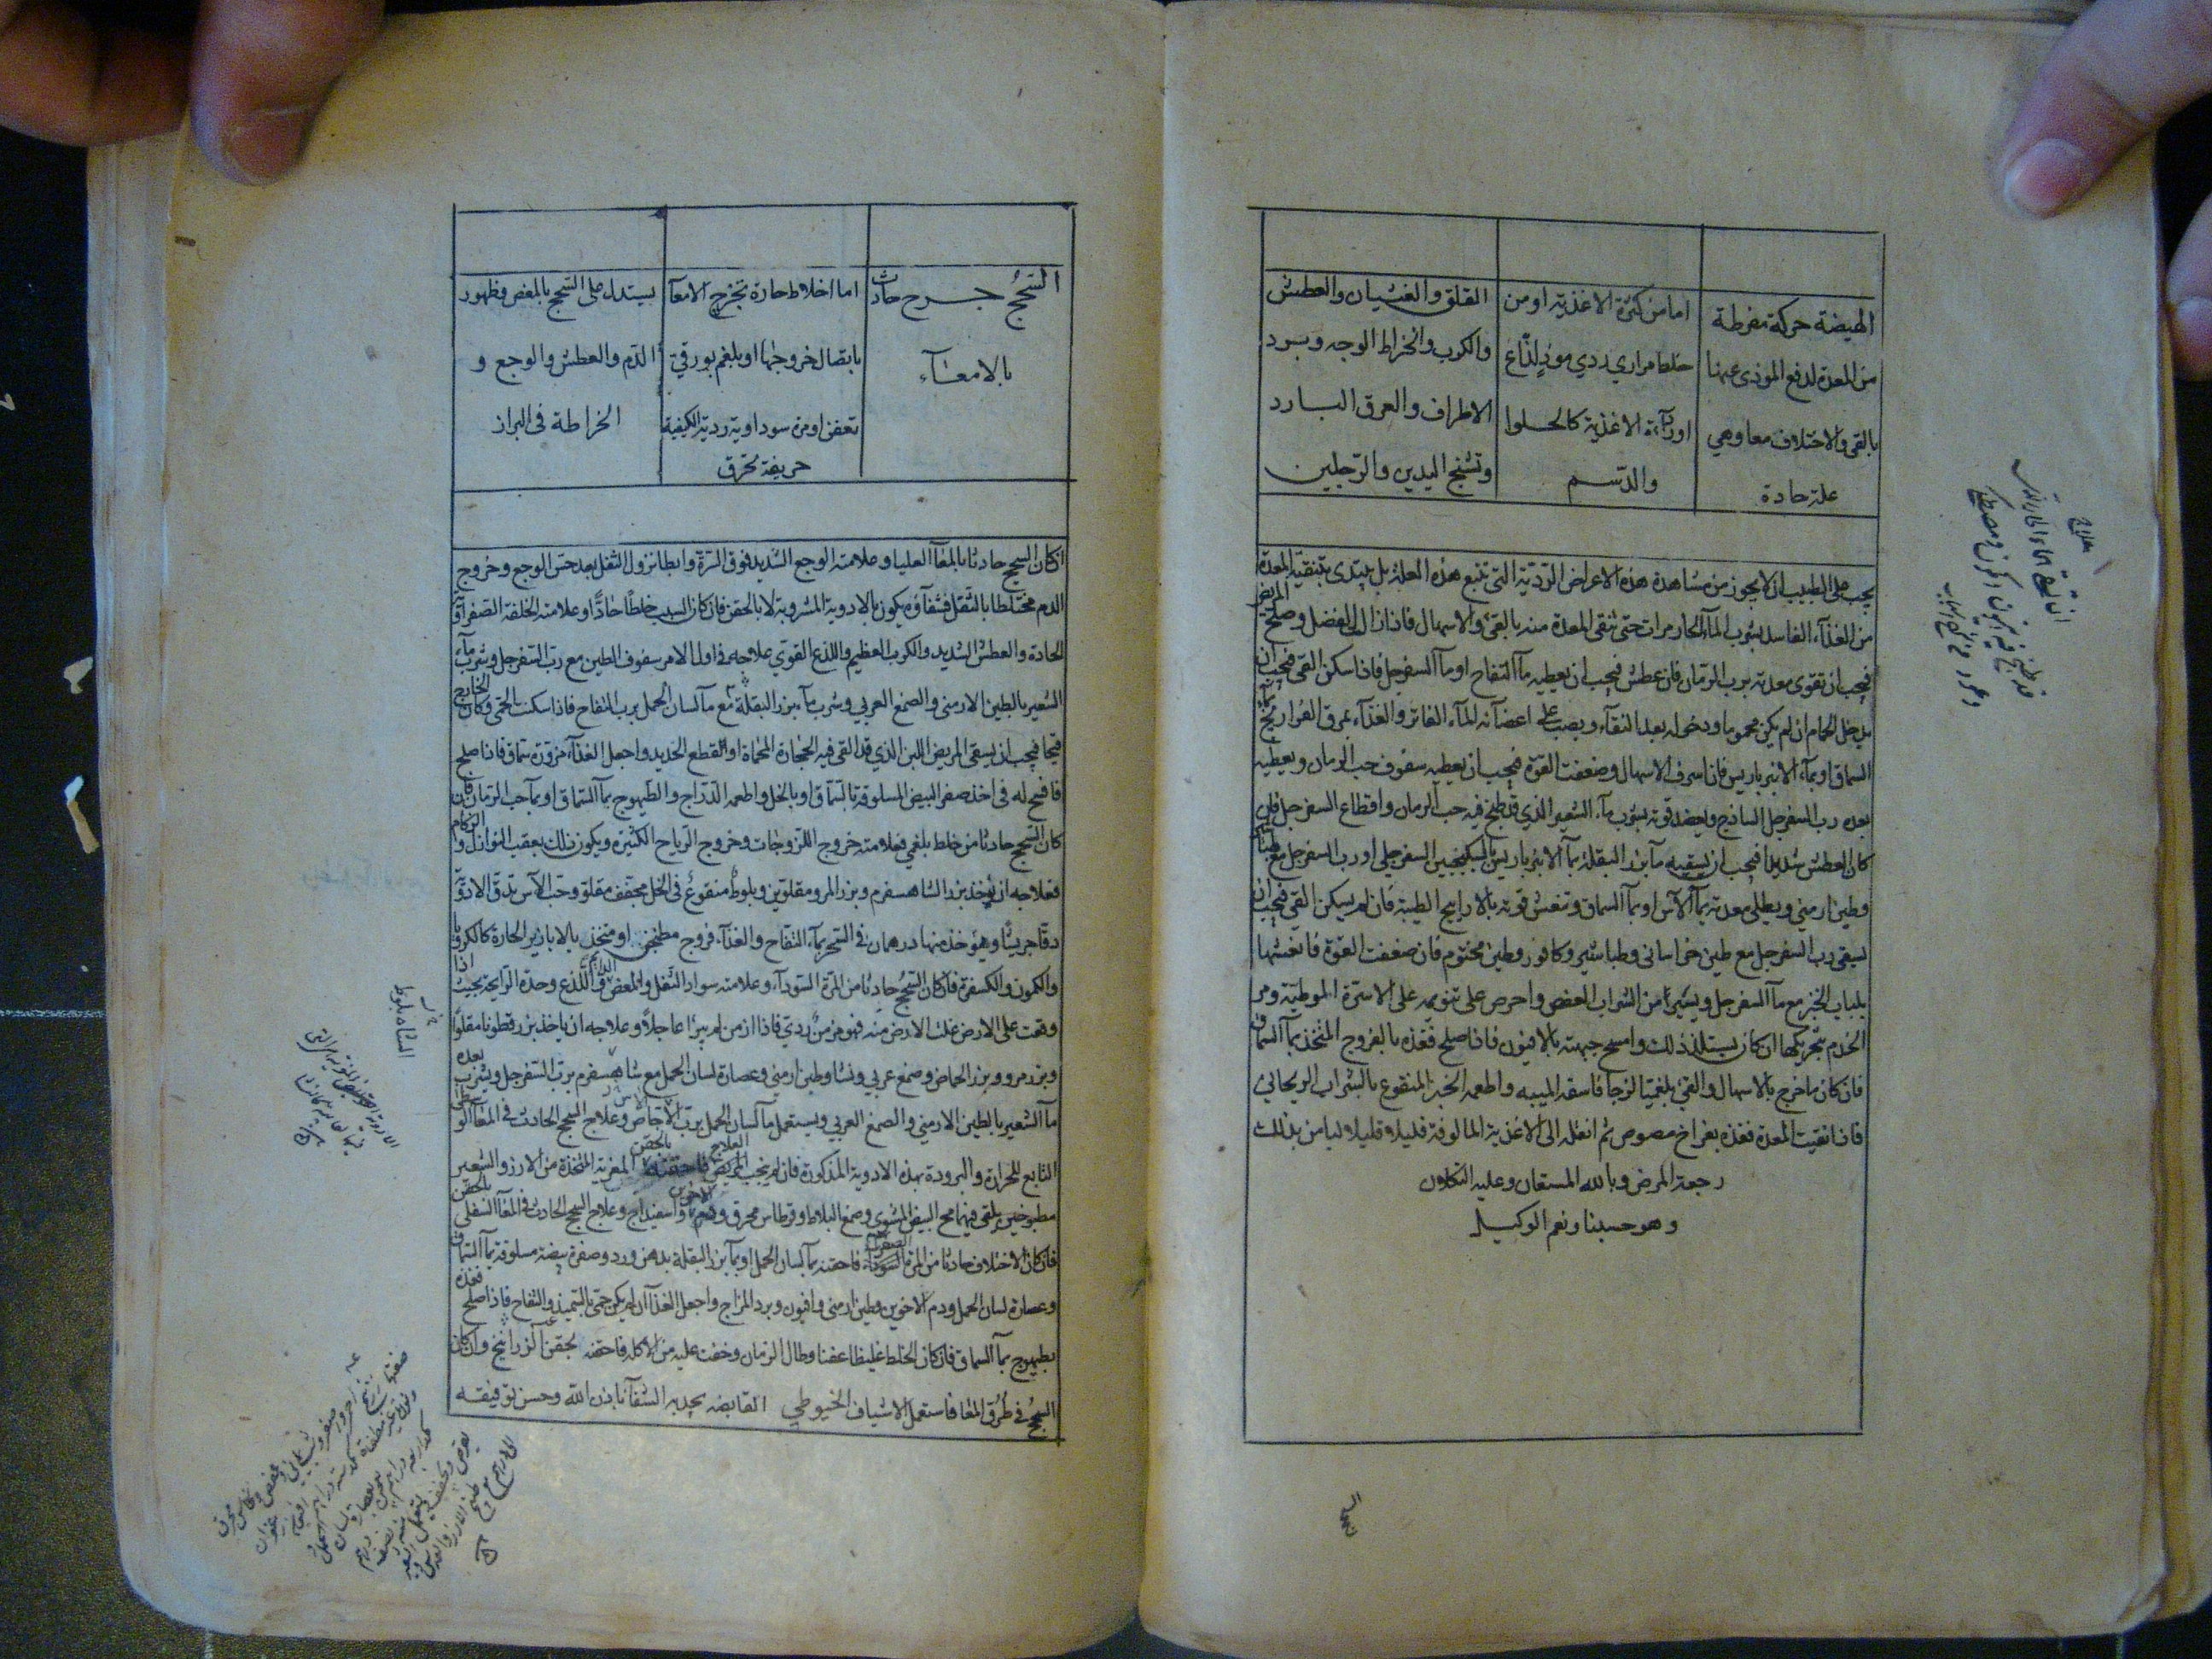 الهيضة حركة مفرطة
من المعدة لدفع الموذى عنها
بالقى والاختلاف معا وهي
علة حادة
اما من كثرة الاغذية او من
خلط مراري ردي موذٍ لذّاع
او رداءة الاغذية كالحلوا
والدسم
القلق والغثيان والعطش
والكرب وانخراط الوجه وبرد
الاطراف والعرق البارد
وتشنج اليدين والرجلين
يجب على الطبيب ان لا يجوز من مشاهدة هذه الاعراض الرديّة التى تتبع هذه العلة بل يبتدى بتنقية المعدة
من الغذاء الفاسد بشرب الماء الحار مرات حتى تنقى المعدة منه بالقئ والاسهال فاذا زال الفضل وصلح المريض
فيجب ان تقوى معدته برب الرمان فان عطش فيجب ان يعطيه ماء التفاح او ماء السفرجل فاذا سكن القى فيجب ان
يدخل الحمام ان لم يكن محموما ودخوله بعد النقاء ويصب على اعضائه الماء الفاتر والغذاء بمرق الفراريج بماء
السماق او بماء الانبرباريس فان اسرف الاسهال وضعفت القوة فيجب ان يعطيه سفوف حب الرمان ويعطيه
بعده رب السفرجل الساذج ويعضد قوته بشرب ماء الشعير الذي قد طبخ فيه حب الرمان واقطاع السفرجل فان
كان العطش شديدا فيجب ان يسقيه ماء بزر البقلة بماء الانبرباريس بالسكنجبين السفرجلي او رب السفرجل مع
وطين ارمني ويطلى معدته بماء الآس او بماء السماق وتنعش قوته بالاراييح الطيبة فان لم يسكن القى فيجب ان
يسقى رب السفرجل مع طين خراساني وطباشير وكافور وطين مختوم فان ضعفت القوة فانعشها
بلباب الخبز مع ماء السفرجل ويسيرا من الشراب العفص واحرص على تنويمه على الاسرة الموطية ومر
الخدم بتحريكها ان كان يستلذ ذلك وامسح جبهته بالافيون فاذا صلح فغذه بالفروج المتخذ بماء السماق
فان كان ما خرج بالاسهال والقئ بلغميا لزجا فاسقه الميبه واطعمه الخبز المنقوع بالشراب الريحاني
فاذا نقيت المعدة فغذه بفراخ مصوص ثم انقله الى الاغذية المالوفة قليلا قليلا ليامن بذلك
رجعة المرض وبالله المستعان وعليه التكلان
وهو حسبنا ونعم الوكيل
السحج جرح حادث
بالامعاء
اما اخلاط حارة تجرح الامعاء
باتصال خروجها او بلغم بورقي
تعفن او مرة سوداوية ردية الكيفية
حريفة تحرق
يستدل على السحج بالمغص وظهور
الدم والعطش والوجع و
الخراطة فى البراز
ان كان السحج حادثا بالمعاء العليا وعلامته الوجع الشديد فوق السرة وابطا نزول الثفل بعد حس الوجع وخروج
الدم مختلطا بالثفل فشفاؤه يكون بالادوية المشروبة لا بالحقن فان كان السبب خلطًا حادًّا وعلامته الخلفة الصفراوية
الحادة والعطش الشديد والكرب العظيم واللذع القوي علاجه في اول الامر سفوف الطين مع رب السفرجل وشرب ماء
الشعير بالطين الارمنى والصمغ العربي وشرب ماء بزر البقلة مع ماء لسان الحمل برب التفاح فاذا سكنت الحمى وكان الخارج
قيحا فيجب ان يسقى المريض اللبن الذي قد القى فيه الحجارة المحماة او القطع الحديد واجعل الغذاء مزورة سماق فاذا صلح
فافسح له فى اخذ صفر البيض المسلوقة بالسماق او بالخل واطعمه الدراج والطيهوج بماء السماق او بماء حب الرمان فان
كان السحج حادثا من خلط بلغمي فعلامته خروج اللزوجات وخروج الرياح الكثيرة ويكون ذلك بعقب النوازل والزكام
فعلاجه ان يؤخذ بزر الشاهسفرم وبزر المرو مقلوين وبلوط منقوع فى الخل مجفف مقلو وحب الآس تدق الادوية
دقا جريشا ويؤخذ منها درهمان في السحر بماء التفاح والغذاء فروج مطجن او متخذ بالابازير الحارة كالكرويا
والكمون والكسفرة فان كان السحج حادثا من المرة السوداء وعلامته سواد الثفل والمغص الدائم واللذع وحدة الرايحة بحيث اذا
وقعت على الارض غلت الارض منه فهو مزمن ردي فاذا ازمن لم يبرأ عاجلا وعلاجه ان ياخذ بزرقطونا مقلوا
وبزر مرو وبزر الحماض وصمغ عربي ونشا وطين ارمني وعصارة لسان الحمل مع شاهسفرم برب السفرجل ويشرب بعده
ماء الشعير بالطين الارمني والصمغ العربي ويستعمل ماء لسان الحمل برب الاجاص وعلاج السحج الحادث فى المعاء الوسطى
التابع للحرارة والبرودة بهذه الادوية المذكورة فان لم يجب المريض العلاج فاحقنه بالحقن المغرية المتخذة من الارز والشعير
مطبوخين يلقى فيهما مح البيض المشوى وصمغ البلاط وقرطاس محرق ودم الاخوين واسفيداج وعلاج السحج الحادث فى المعاء السفلى بالحقن
فان كان الاختلاف حادثا من المرة الصفراء فاحقنه بماء لسان الحمل او بماء بزر البقلة بدهن ورد وصفرة بيضة مسلوقة بماء السماق
وعصارة لسان الحمل ودم الاخوين وطين ارمنى وافيون وبرد المزاج واجعل الغذاء ان لم يكن حمى بالسميذ والتفاح فاذا صلح فغذه
بطيهوج بماء السماق فان كان الخلط غليظا عفنا وطال الزمان وخفت عليه من الاكلة فاحقنه بحقن الزرانيخ وان كان
السحج في طرق المعا فاستعمل الاشياف الخيوطي القابضه يجد به الشفاء باذن الله وحسن توفيقه